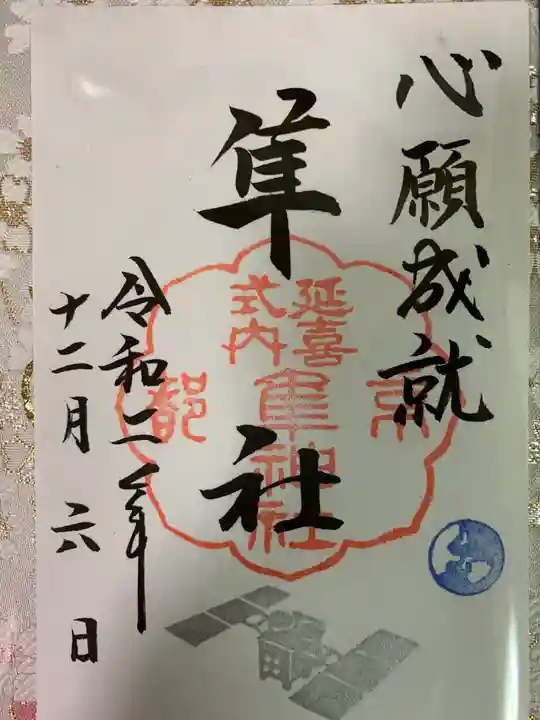 心願成就
隼社
延喜
式内
隼神社
京
都
令和二年
十二月六日